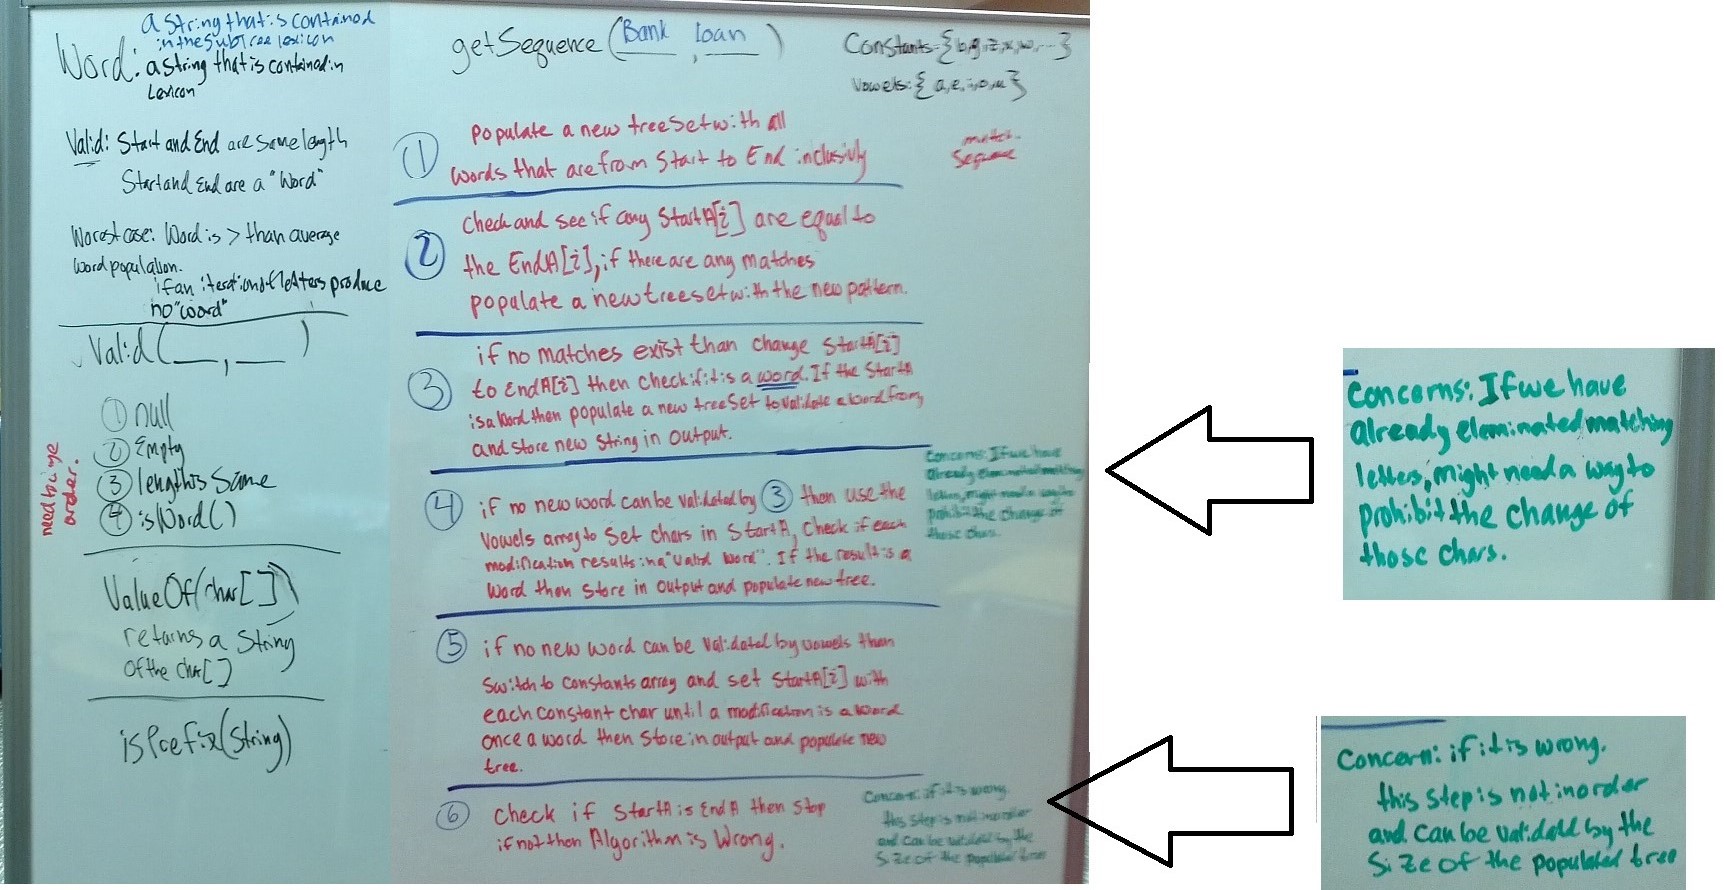 a String that is contained
in the subtree lexicon
Word: a string that is contained in
Lexicon
Valid: Start and End are same length
Start and End are a "Word"
Worest case: Word is > than average
word population.
if an iterations of letters produce
no "word"
Valid(__, __)
① null
② Empty
③ length is same
④ isWord()
need to be
order.
ValueOf(char[])
returns a String
of the char[]
isPrefix(String)
getSequence(Bank, loan)
Constants-{b,g,z,x,w,...}
Vowels:{a,e,i,o,u}
match.
Sequence
① populate a new treeset with all
words that are from Start to End inclusivly
② Check and see if any StartA[i] are equal to
the EndA[i], if there are any matches
populate a new treeset with the new pattern.
③ if no matches exist than change StartA[i]
to EndA[i] then check if it is a word. If the StartA
is a Word then populate a new treeSet to validate a word from
and store new String in output.
④ if no new word can be validated by ③ then use the
Vowels array to set chars in StartA, Check if each
modification results in a "Valid word". If the result is a
Word then store in output and populate new tree.
⑤ if no new word can be validated by vowels then
Switch to constants array and set StartA[i] with
each constant char until a modification is a word
once a word then store in output and populate new
tree.
⑥ check if StartA is EndA then stop
if not then Algorithm is Wrong.
Concerns: If we have
already eleminated matching
letters, might need a way to
prohibit the change of
those chars.
Concern: if it is wrong.
this step is not in order
and can be validated by the
Size of the populated tree
Concerns: If we have
already eleminated matching
letters, might need a way to
prohibit the change of
those chars.
Concern: if it is wrong.
this step is not in order
and can be validated by the
Size of the populated tree